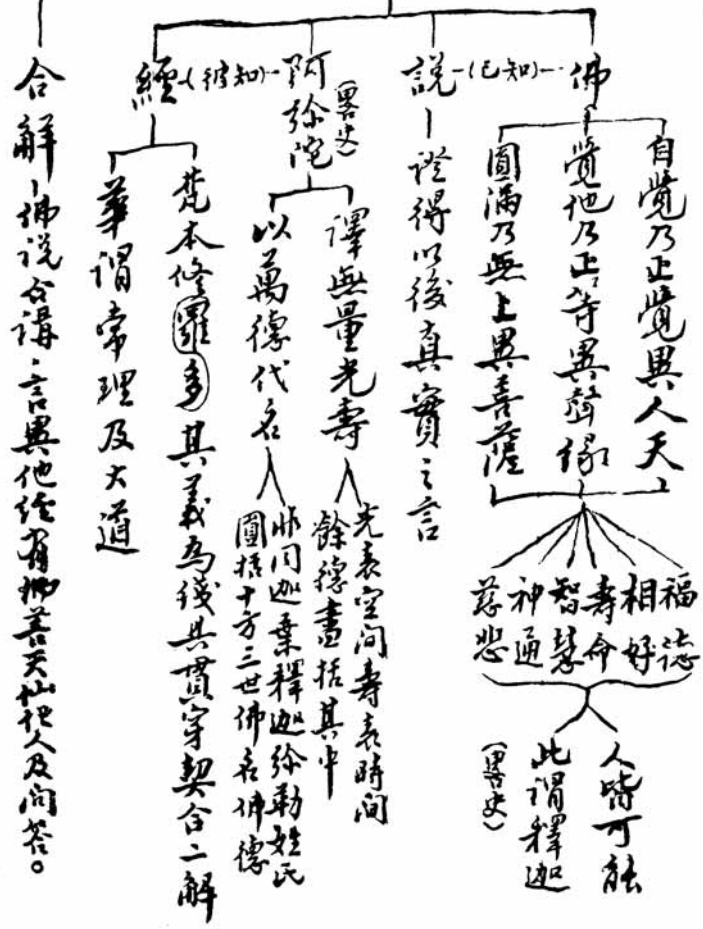 佛
自覺乃正覺異人天
覺他乃正等異聲緣
圓滿乃無上異菩薩
福德
相好
壽命
智慧
神通
慈悲
人皆可能
此謂釋迦
(畧史)
(已知)
說
證得以後真實之言
阿彌陀
(畧史)
譯無量光壽
光表空間壽表時間
餘德盡括其中
以萬德代名
非同迦葉釋迦彌勒姓氏
圓括十方三世佛名佛德
(彼知)
經
梵本修羅多其義為綫具貫穿契合二解
華謂常理及大道
合解
佛說合講、言異他經有佛菩天仙化人及問答。